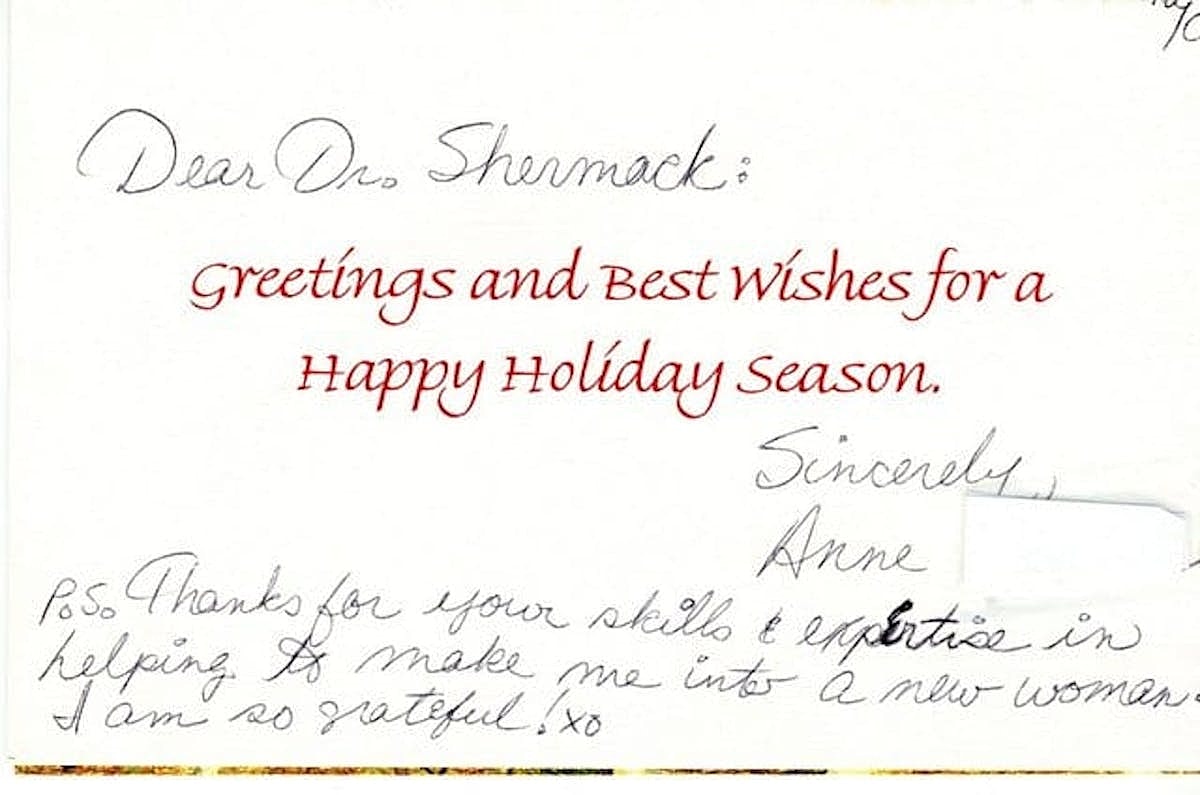 Dear Dr. Shermack:
Greetings and Best Wishes for a
Happy Holiday Season.
Sincerely,
Anne
P.S. Thanks for your skills & expertise in
helping to make me into a new woman.
I am so grateful! xo